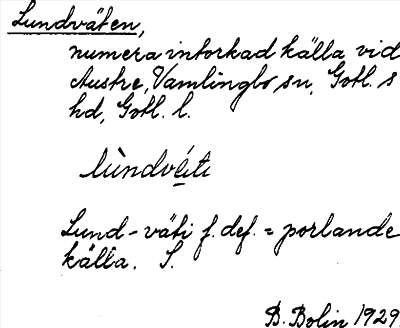 Lundväten,
numera intorkad källa vid
Austre, Vamlingbo sn, Gotl. s
hd, Gotl. l.
lùndvéti
Lund-väti f. def. = porlande
källa. S.
B. Bolin 1929.